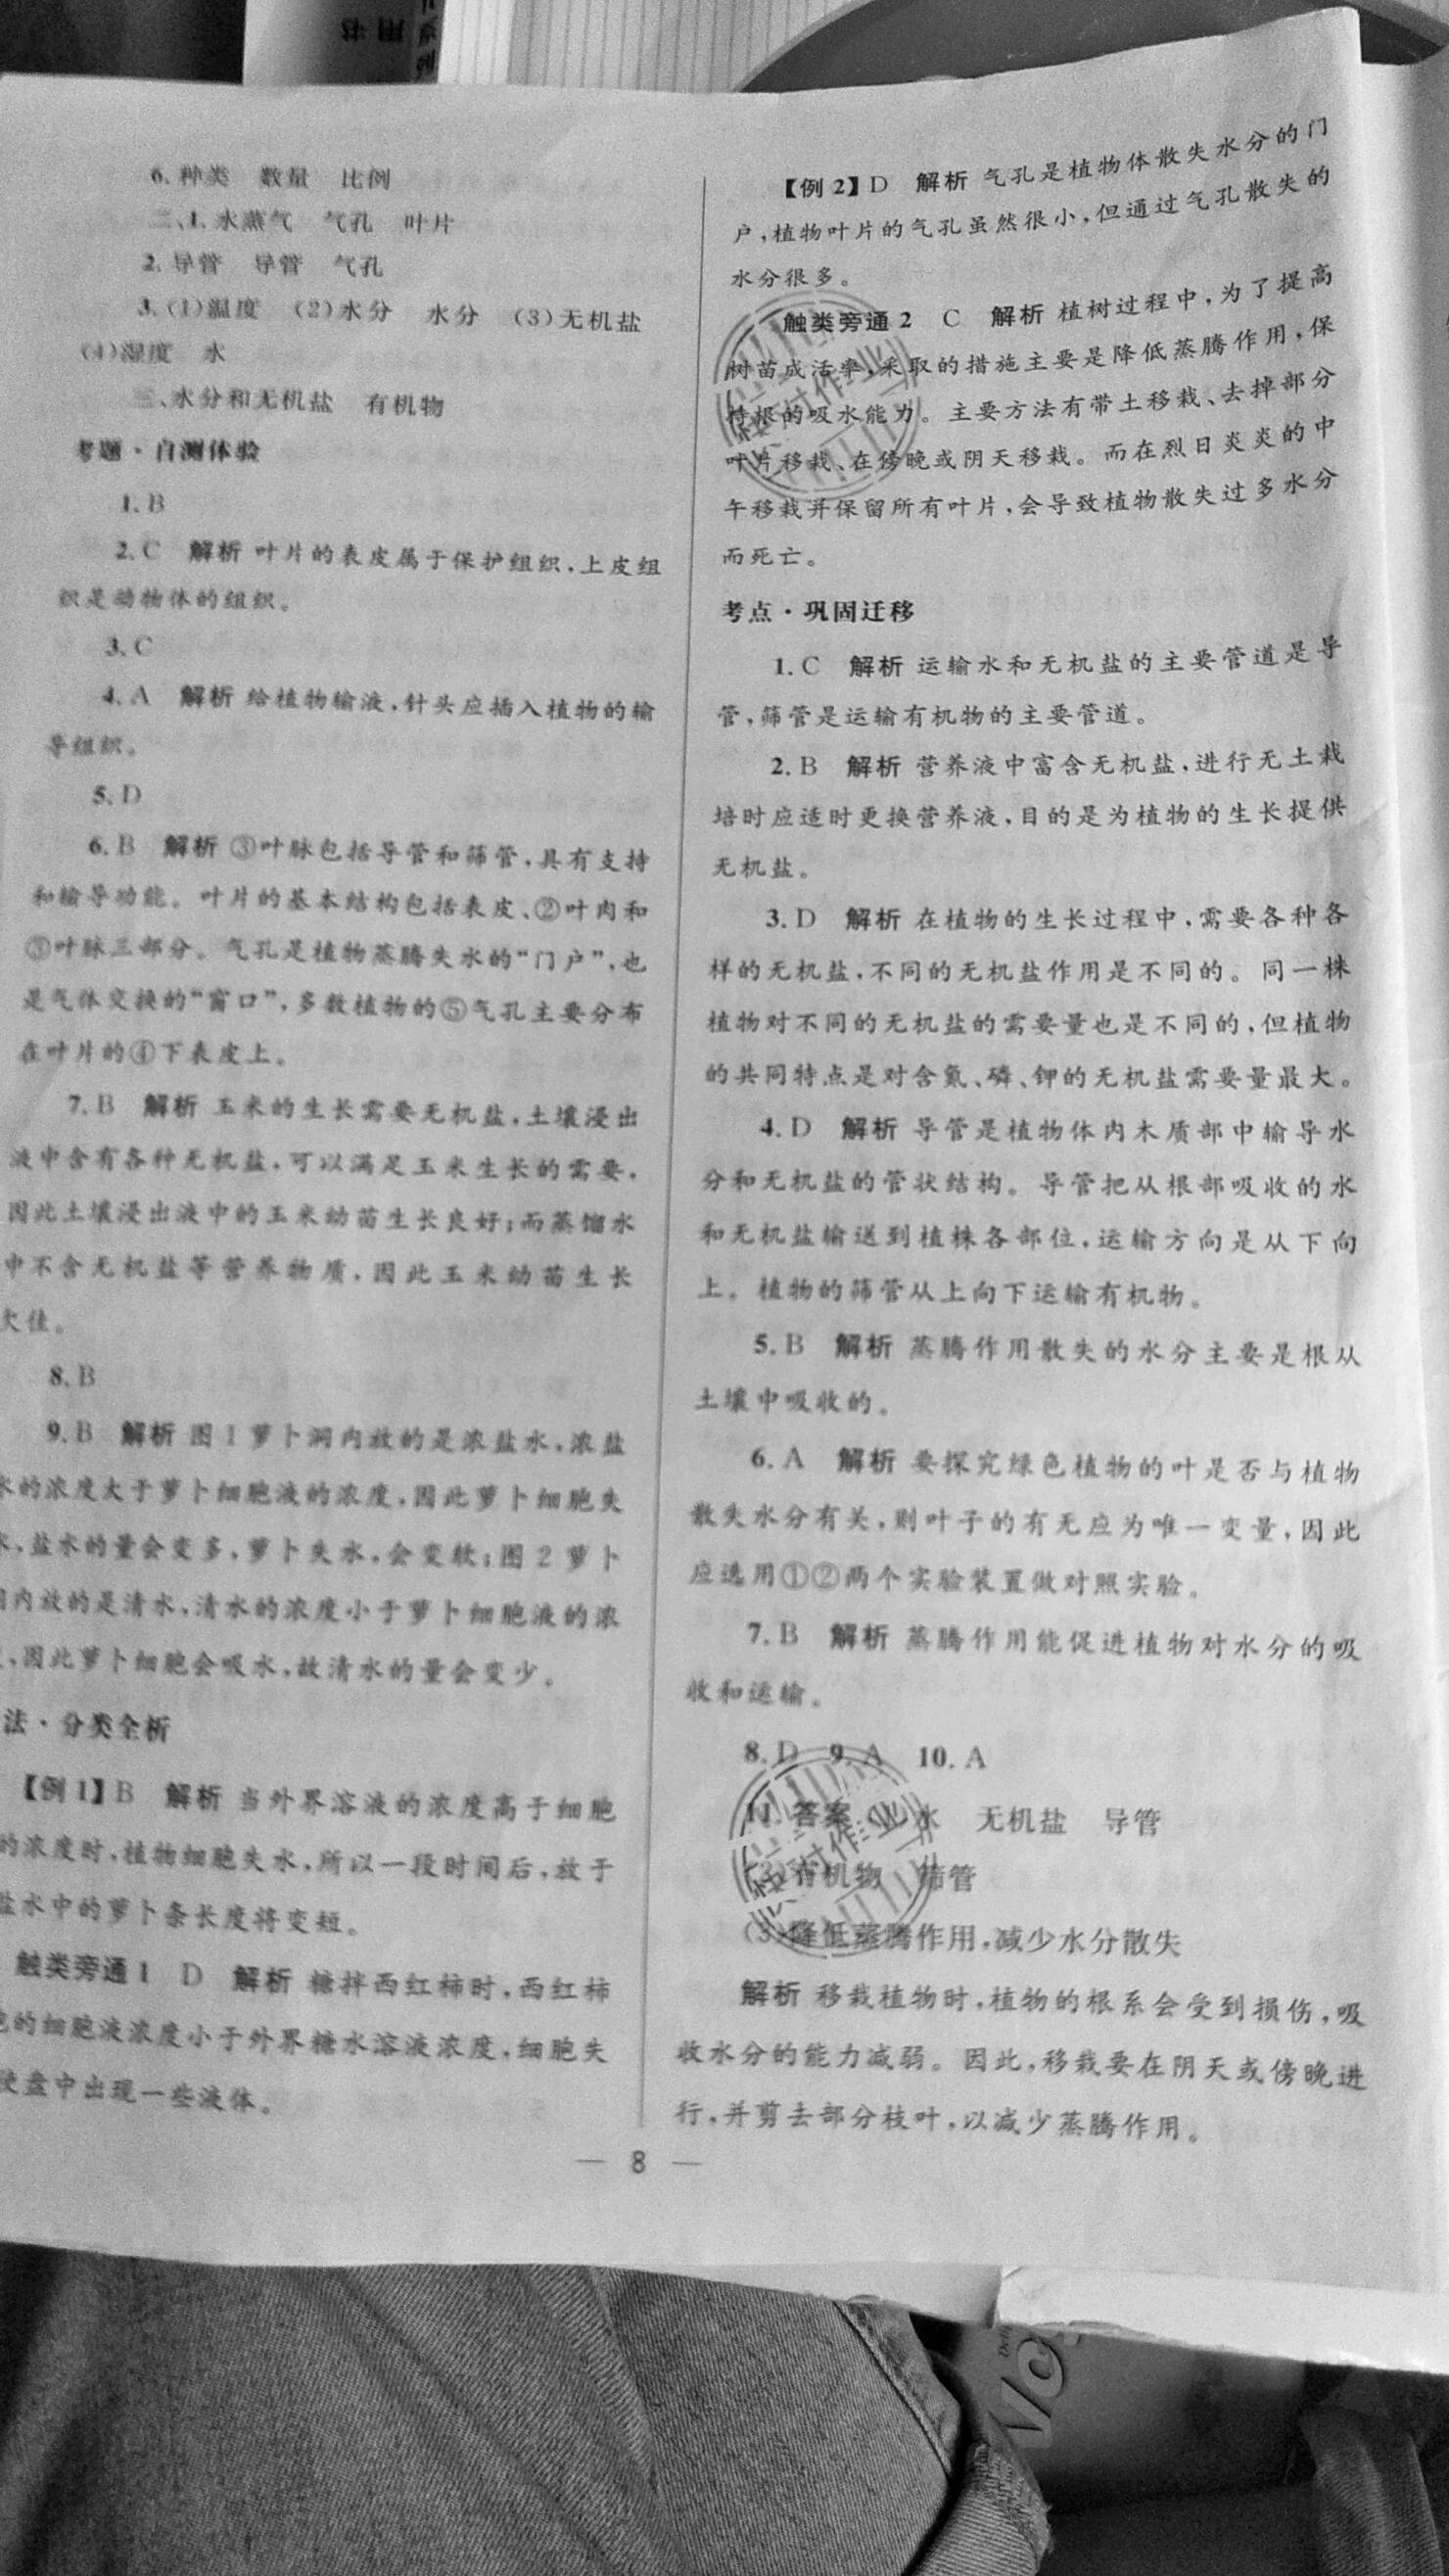 用书
6. 种类 数量 比例
二、1. 水蒸气 气孔 叶片
2. 导管 导管 气孔
3. (1)温度 (2)水分 水分 (3)无机盐
(4)湿度 水
三、水分和无机盐 有机物
考题·自测体验
1. B
2. C 解析 叶片的表皮属于保护组织,上皮组
织是动物体的组织。
3. C
4. A 解析 给植物输液,针头应插入植物的输
导组织。
5. D
6. B 解析 ③叶脉包括导管和筛管,具有支持
和输导功能。叶片的基本结构包括表皮、②叶肉和
③叶脉三部分。气孔是植物蒸腾失水的“门户”,也
是气体交换的“窗口”,多数植物的⑤气孔主要分布
在叶片的④下表皮上。
7. B 解析 玉米的生长需要无机盐,土壤浸出
液中含有各种无机盐,可以满足玉米生长的需要,
因此土壤浸出液中的玉米幼苗生长良好;而蒸馏水
中不含无机盐等营养物质,因此玉米幼苗生长
欠佳。
8. B
9. B 解析 图1萝卜洞内放的是浓盐水,浓盐
水的浓度大于萝卜细胞液的浓度,因此萝卜细胞失
水,盐水的量会变多,萝卜失水,会变软;图2萝卜
内放的是清水,清水的浓度小于萝卜细胞液的浓
,因此萝卜细胞会吸水,故清水的量会变少。
法·分类全析
【例1】B 解析 当外界溶液的浓度高于细胞
的浓度时,植物细胞失水,所以一段时间后,放于
盐水中的萝卜条长度将变短。
触类旁通1 D 解析 糖拌西红柿时,西红柿
的细胞液浓度小于外界糖水溶液浓度,细胞失
使盘中出现一些液体。
【例2】D 解析 气孔是植物体散失水分的门
户,植物叶片的气孔虽然很小,但通过气孔散失的
水分很多。
触类旁通2 C 解析 植树过程中,为了提高
树苗成活率,采取的措施主要是降低蒸腾作用,保
持根的吸水能力。主要方法有带土移栽、去掉部分
叶片移栽、在傍晚或阴天移栽。而在烈日炎炎的中
午移栽并保留所有叶片,会导致植物散失过多水分
而死亡。
考点·巩固迁移
1. C 解析 运输水和无机盐的主要管道是导
管,筛管是运输有机物的主要管道。
2. B 解析 营养液中富含无机盐,进行无土栽
培时应适时更换营养液,目的是为植物的生长提供
无机盐。
3. D 解析 在植物的生长过程中,需要各种各
样的无机盐,不同的无机盐作用是不同的。同一株
植物对不同的无机盐的需要量也是不同的,但植物
的共同特点是对含氮、磷、钾的无机盐需要量最大。
4. D 解析 导管是植物体内木质部中输导水
分和无机盐的管状结构。导管把从根部吸收的水
和无机盐输送到植株各部位,运输方向是从下向
上。植物的筛管从上向下运输有机物。
5. B 解析 蒸腾作用散失的水分主要是根从
土壤中吸收的。
6. A 解析 要探究绿色植物的叶是否与植物
散失水分有关,则叶子的有无应为唯一变量,因此
应选用①②两个实验装置做对照实验。
7. B 解析 蒸腾作用能促进植物对水分的吸
收和运输。
8. D 9. A 10. A
11. 答案 (1)水 无机盐 导管
(2)有机物 筛管
(3)降低蒸腾作用,减少水分散失
解析 移栽植物时,植物的根系会受到损伤,吸
收水分的能力减弱。因此,移栽要在阴天或傍晚进
行,并剪去部分枝叶,以减少蒸腾作用。
— 8 —